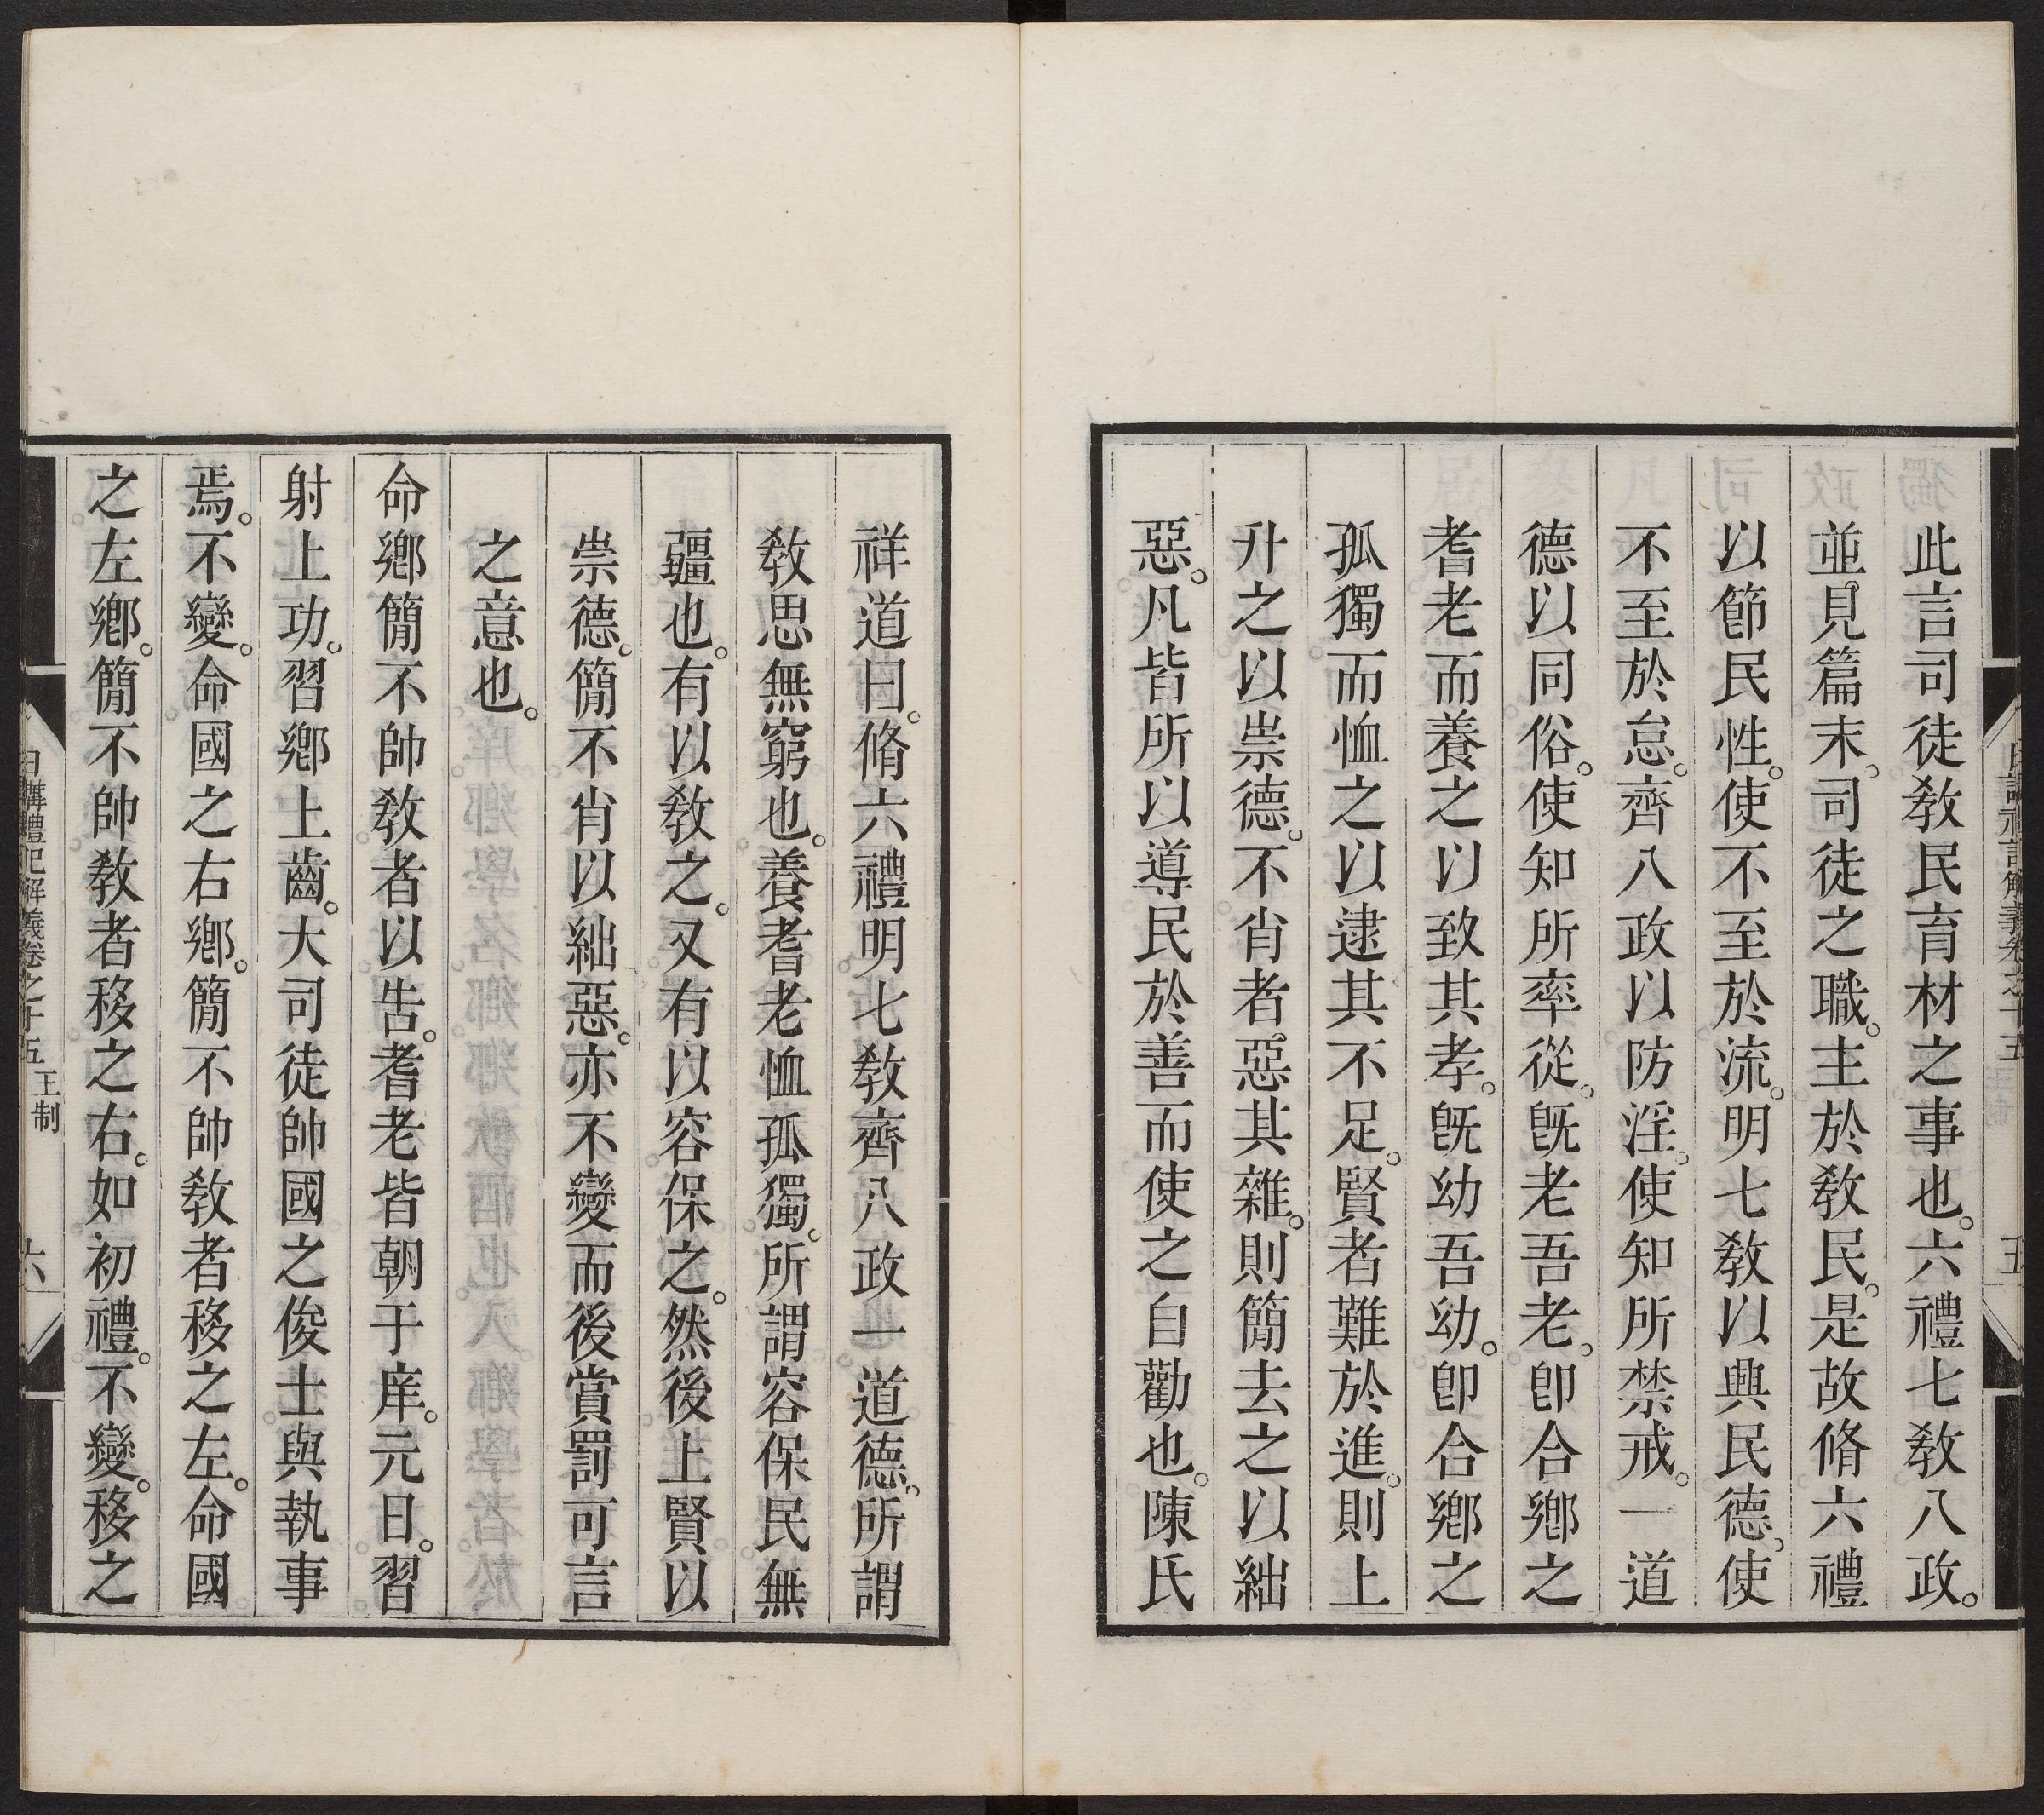 此言司徒敎民育材之事也。六禮七敎八政。
並見篇末。司徒之職。主於敎民。是故脩六禮
以節民性。使不至於流。明七敎以興民德。使
不至於怠。齊八政以防淫。使知所禁戒。一道
德以同俗。使知所率從。旣老吾老。卽合鄉之
耆老而養之以致其孝。旣幼吾幼。卽合鄉之
孤獨而恤之以逮其不足。賢者難於進。則上
升之以崇德。不肖者。惡其雜。則簡去之以絀
惡。凡皆所以導民於善而使之自勸也。陳氏
祥道曰。脩六禮明七敎齊八政一道德。所謂
敎思無窮也。養耆老恤孤獨。所謂容保民無
疆也。有以敎之。又有以容保之。然後上賢以
崇德。簡不肖以絀惡。亦不變而後賞罰可言
之意也。
命鄉簡不帥敎者以吿。耆老皆朝于庠。元日。習
射上功。習鄉上齒。大司徒帥國之俊士與執事
焉。不變。命國之右鄉。簡不帥敎者移之左。命國
之左鄉。簡不帥敎者移之右。如初禮。不變。移之
日講禮記解義卷之十五 王制 六